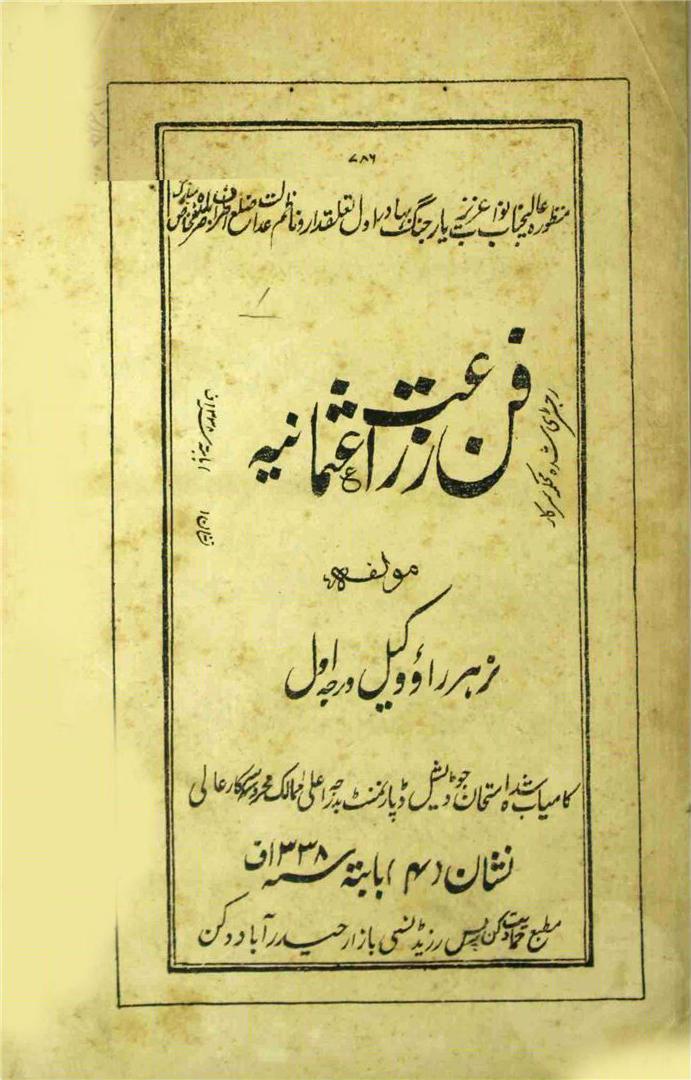 ۷۸۶
منظورہ عالیجناب نواب عزیز یار جنگ بہادر اول تعلقدار و ناظم عدالت ضلع اطراف
فن زراعت عثمانیہ
رجسٹری شدہ محکمہ سرکار
مولفہ
نرہر راؤ وکیل درجہ اول
کامیاب شدہ امتحان جوڈیشل ڈپارٹمنٹ بدرجہ اعلی ممالک محروسہ سرکار عالی
نشان (۴) بابتہ سنہ ۱۳۳۸ف
مطبع حمایت دکن پریس رزیڈنسی بازار حیدرآباد دکن